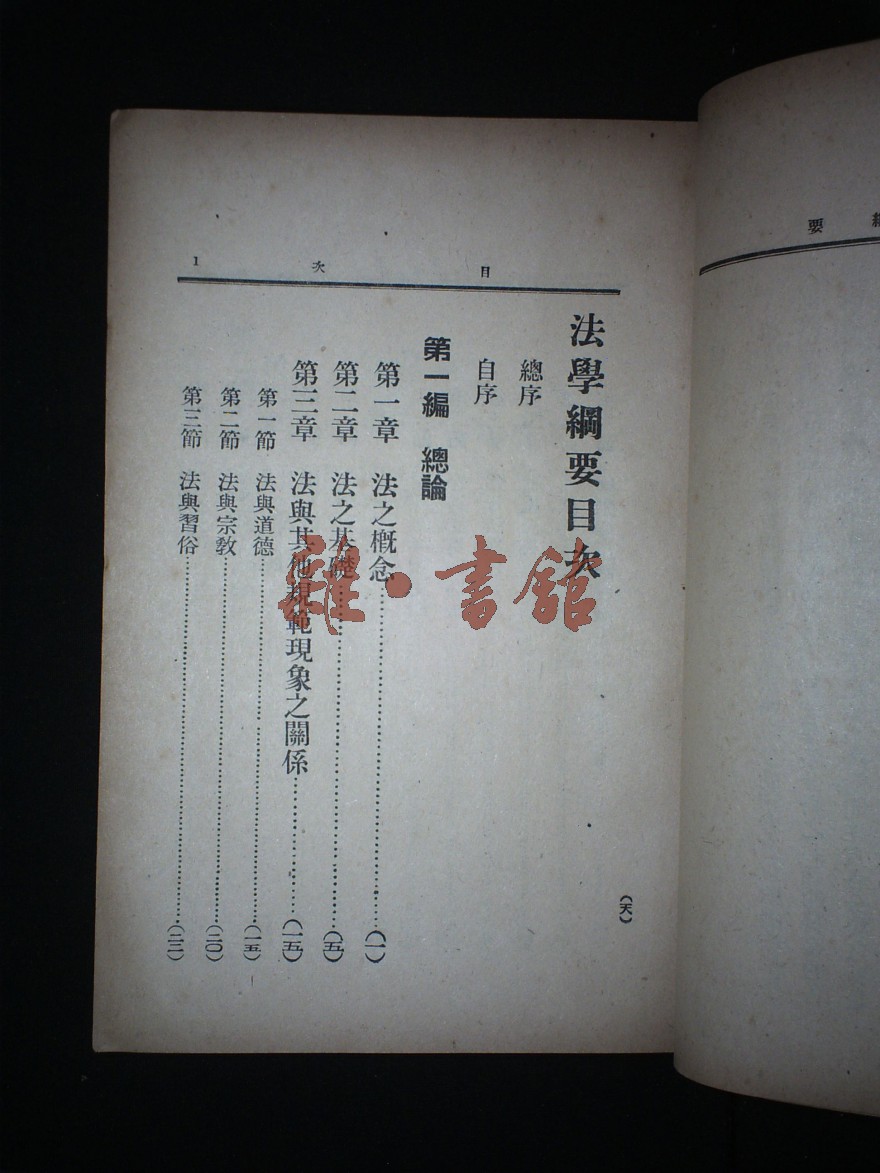 目次 1
法學綱要目次
(天)
總序
自序
第一編 總論
第一章 法之概念…………(一)
第二章 法之基礎…………(五)
第三章 法與其他規範現象之關係…………(一五)
第一節 法與道德…………(一五)
第二節 法與宗敎…………(二〇)
第三節 法與習俗…………(二三)
要
雜·書館